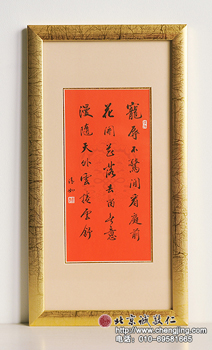 寵辱不驚閒看庭前
花開花落去留無意
漫隨天外雲卷雲舒
北京誠敬仁
www.chengjing.com
电话:010-69581665